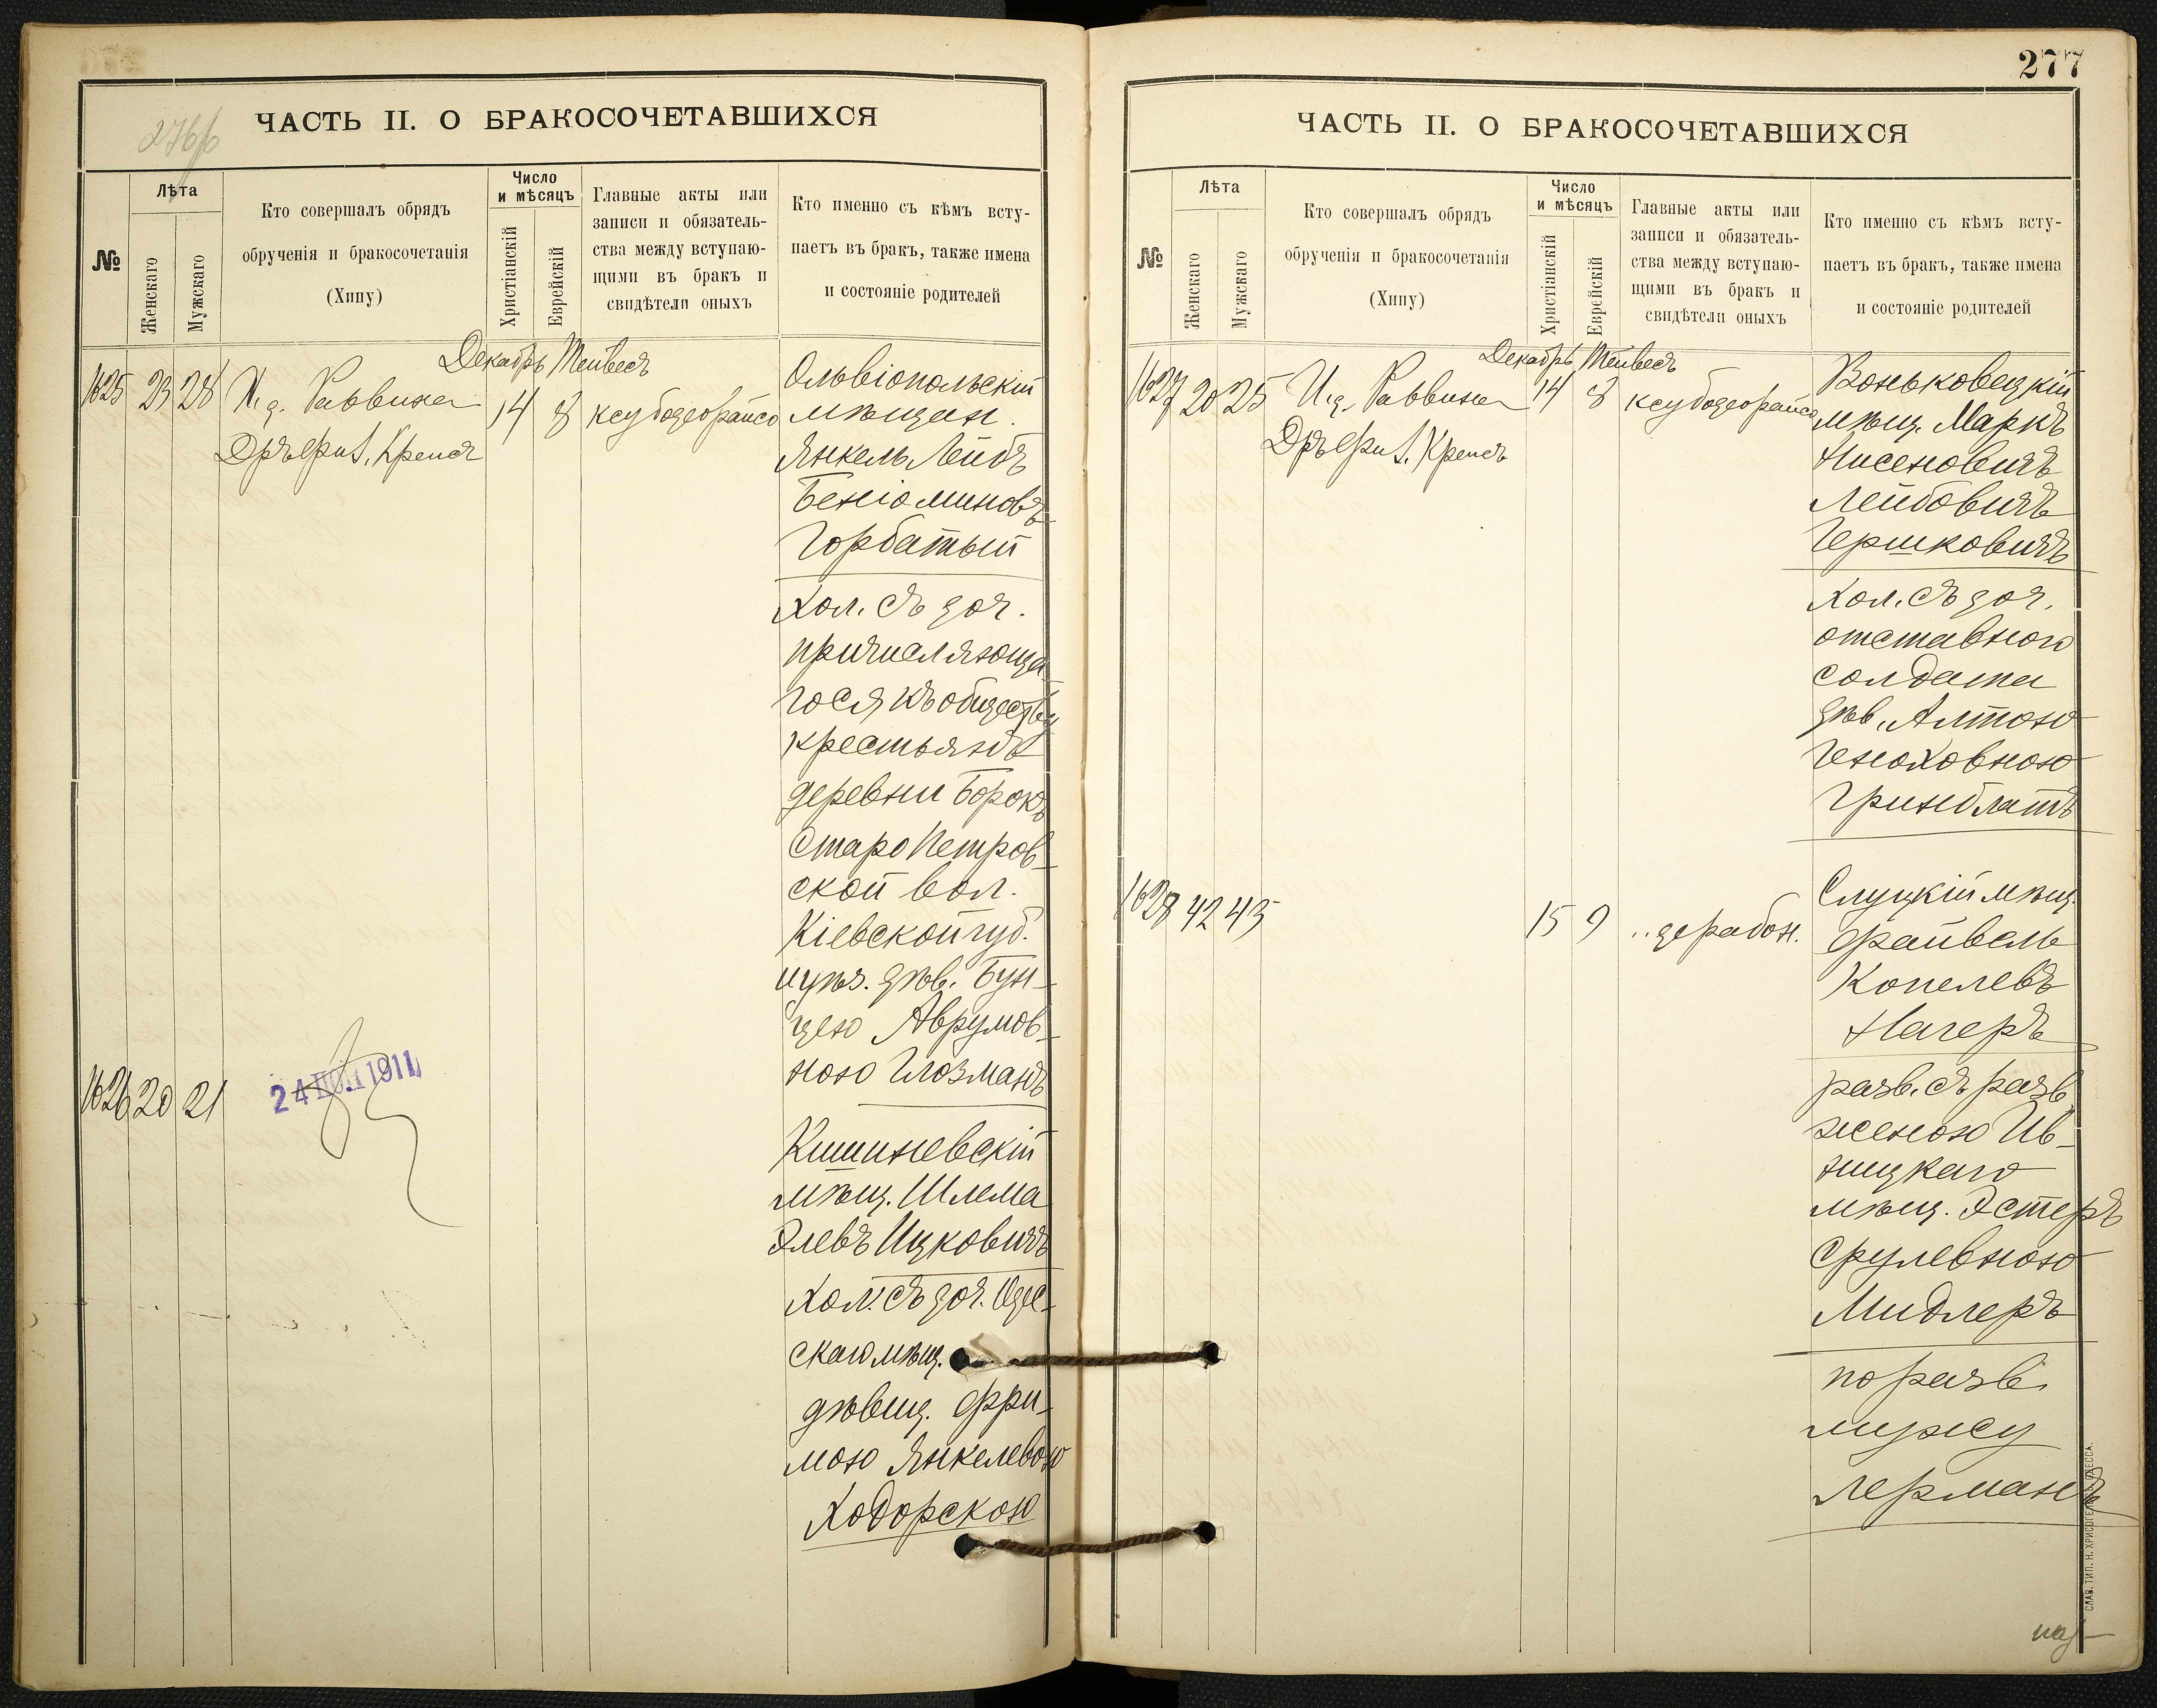 276/б
ЧАСТЬ II. О БРАКОСОЧЕТАВШИХСЯ
№
Лѣта
Женскаго
Мужскаго
Кто совершалъ обрядъ
обрученія и бракосочетанія
(Хипу)
Число
и мѣсяцъ
Христіанскій
Еврейскій
Главные акты или
записи и обязатель-
ства между вступаю-
щими въ бракъ и
свидѣтели оныхъ
Кто именно съ кѣмъ всту-
паетъ въ бракъ, также имена
и состояніе родителей
Декабрь Тейвесъ
1625 23 28 И.д. Раввина 14 8 ксубодеорайсо
Дръ фи L. Крепсъ
Ольвіопольскій
мѣщан.
Янкель Лейбъ
Беніоминовъ
Горбатый
хол. съ доч.
причисляюща
гося къ обществу
крестьянъ
деревни Борокъ
Старо Петров-
ской вол.
Кіевской губ.
и уѣз. дѣв. Бун-
цею Аврумов-
ною Глозманъ
1626 20 21
24 1911
Кишиневскій
мѣщ. Шлема
Элевъ Ицковичъ
хол. съ доч. Одес-
скаго мѣщ.
дѣвиц. Фри-
мою Янкелевою
Ходорскою
277
ЧАСТЬ II. О БРАКОСОЧЕТАВШИХСЯ
№
Лѣта
Женскаго
Мужскаго
Кто совершалъ обрядъ
обрученія и бракосочетанія
(Хипу)
Число
и мѣсяцъ
Христіанскій
Еврейскій
Главные акты или
записи и обязатель-
ства между вступаю-
щими въ бракъ и
свидѣтели оныхъ
Кто именно съ кѣмъ всту-
паетъ въ бракъ, также имена
и состояніе родителей
Декабрь Тейвесъ
1627 20 25 И.д. Раввина 14 8 ксубодеорайсо
Дръ фи L. Крепсъ
Воньковецкій
мѣщ. Маркъ
Нисеновичъ
Лейбовичъ
Гершковичъ
хол. съ доч.
отставного
солдата
дѣв. Алтою
Геноховною
Гринблатъ
1628 42 43 15 9 „ дерабон.
Слуцкій мѣщ.
Файвель
Копелевъ
Нагеръ
разв. съ разв.
женою Ив-
ницкаго
мѣщ. Эстеръ
Срулевною
Мидлеръ
по разв.
мужу
Лерманъ
СЛАВ. ТИП. Н. ХРИСОГЕЛОСЪ, ОДЕССА.